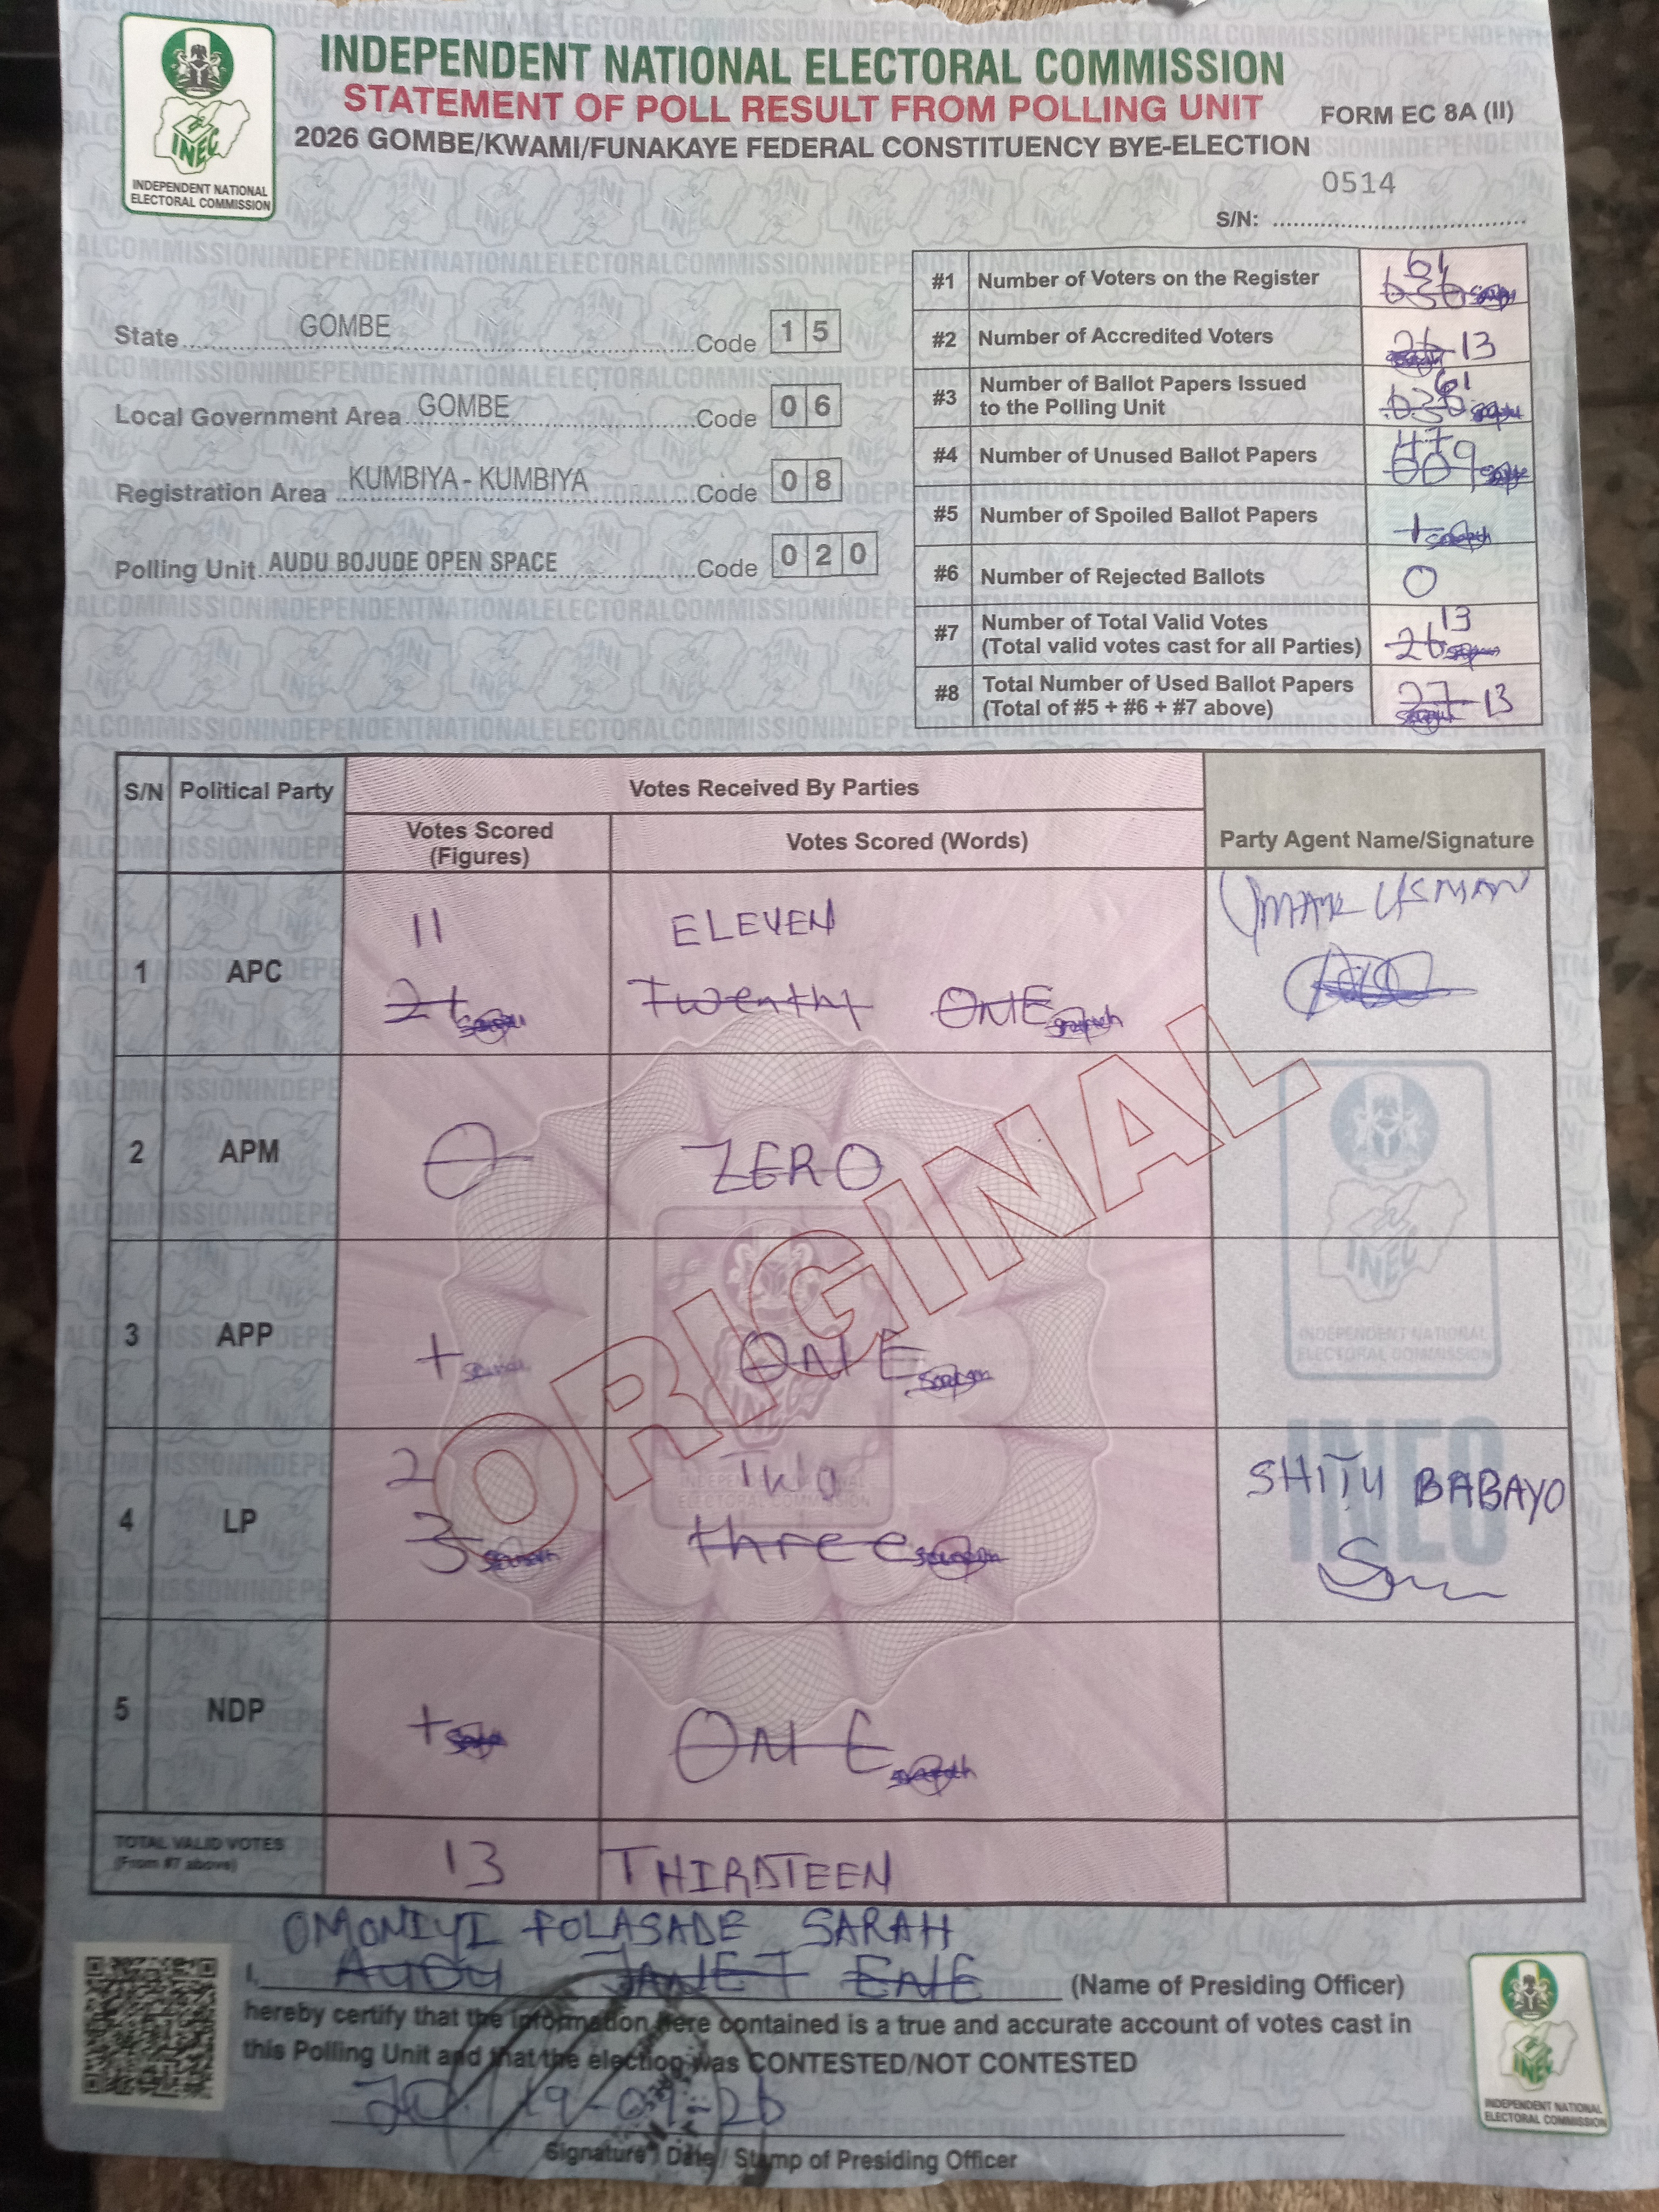 INDEPENDENT NATIONAL ELECTORAL COMMISSION
STATEMENT OF POLL RESULT FROM POLLING UNIT
FORM EC 8A (II)
2026 GOMBE/KWAMI/FUNAKAYE FEDERAL CONSTITUENCY BYE-ELECTION
INDEPENDENT NATIONAL
ELECTORAL COMMISSION
0514
S/N:
State GOMBE Code 15
Local Government Area GOMBE Code 06
Registration Area KUMBIYA - KUMBIYA Code 08
Polling Unit AUDU BOJUDE OPEN SPACE Code 020
#1 Number of Voters on the Register 61
636
#2 Number of Accredited Voters 26 13
#3 Number of Ballot Papers Issued
to the Polling Unit 61
636
#4 Number of Unused Ballot Papers
609
#5 Number of Spoiled Ballot Papers 1
#6 Number of Rejected Ballots 0
#7 Number of Total Valid Votes
(Total valid votes cast for all Parties) 13
26
#8 Total Number of Used Ballot Papers
(Total of #5 + #6 + #7 above) 27 13
S/N Political Party Votes Received By Parties
Votes Scored
(Figures)
Votes Scored (Words)
Party Agent Name/Signature
1 APC 11 ELEVEN UMAR USMAN
21 Twenthy ONE
2 APM 0 ZERO
3 APP 1 ONE
4 LP 2 TWO SHITU BABAYO
3 three
5 NDP 1 ONE
TOTAL VALID VOTES
(From #7 above)
13 THIRDTEEN
ORIGINAL
OMONIYI FOLASADE SARAH
I, AUDU JANET ENE (Name of Presiding Officer)
hereby certify that the information here contained is a true and accurate account of votes cast in
this Polling Unit and that the election was CONTESTED/NOT CONTESTED
Signature / Date / Stamp of Presiding Officer
INDEPENDENT NATIONAL
ELECTORAL COMMISSION